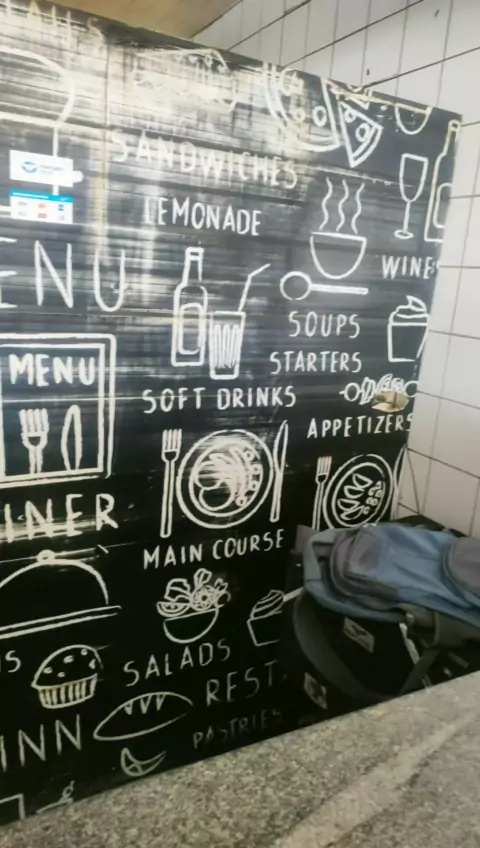 SANDWICHES
LEMONADE
WINE
ENU
SOUPS
MENU
STARTERS
SOFT DRINKS
APPETIZERS
INER
MAIN COURSE
SALADS
REST.
INN
PASTRIES